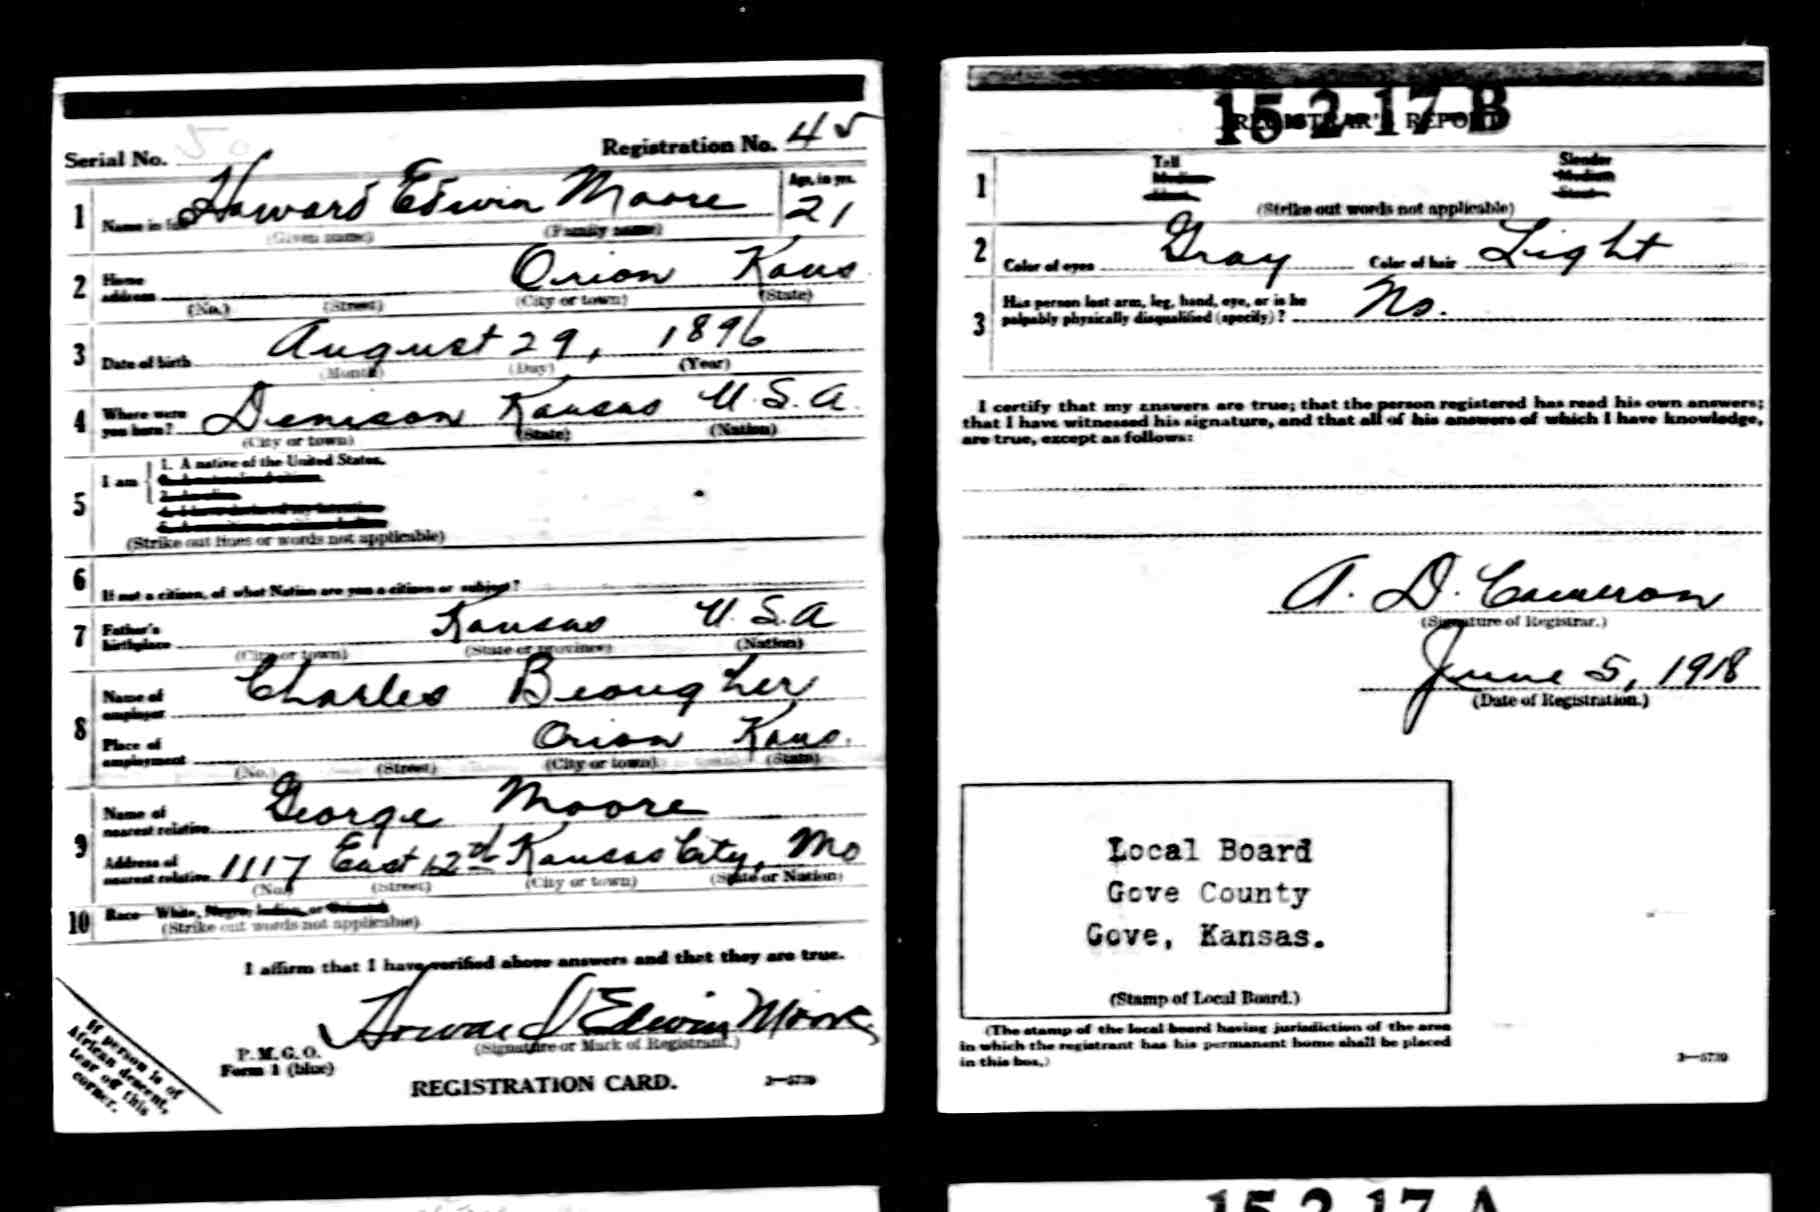 Serial No.
Registration No. 45
1 Name in full Howard Edwin Moore
Age, in yrs. 21
(Given name) (Family name)
2 Home address Orion Kans
(No.) (Street) (City or town) (State)
3 Date of birth August 29, 1896
(Month) (Day) (Year)
4 Where were you born? Denison Kansas U.S.A.
(City or town) (State) (Nation)
5 I am
1. A native of the United States.
(Strike out lines or words not applicable)
6 If not a citizen, of what Nation are you a citizen or subject?
7 Father's birthplace Kansas U.S.A
(City or town) (State or province) (Nation)
8 Name of employer Charles Beougher
Place of employment Orion Kans.
(No.) (Street) (City or town) (State)
9 Name of nearest relative George Moore
Address of nearest relative 1117 East 12d Kansas City, Mo
(No.) (Street) (City or town) (State or Nation)
10 Race—White, Negro, Indian, or Oriental
(Strike out words not applicable)
I affirm that I have verified above answers and that they are true.
Howard Edwin Moore
(Signature or Mark of Registrant.)
P. M. G. O.
Form 1 (blue)
REGISTRATION CARD.
3—5739
If person is of
African descent,
tear off this
corner.
15-2-17-B
REGISTRAR'S REPORT
1 Tall Slender
Medium Medium
Short Stout
(Strike out words not applicable)
2 Color of eyes Gray Color of hair Light
3 Has person lost arm, leg, hand, eye, or is he
palpably physically disqualified (specify)? No.
I certify that my answers are true; that the person registered has read his own answers;
that I have witnessed his signature, and that all of his answers of which I have knowledge,
are true, except as follows:
A. D. Cameron
(Signature of Registrar.)
June 5, 1918
(Date of Registration.)
Local Board
Gove County
Gove, Kansas.
(Stamp of Local Board.)
(The stamp of the local board having jurisdiction of the area
in which the registrant has his permanent home shall be placed
in this box.)
3—5739
15-2-17-A